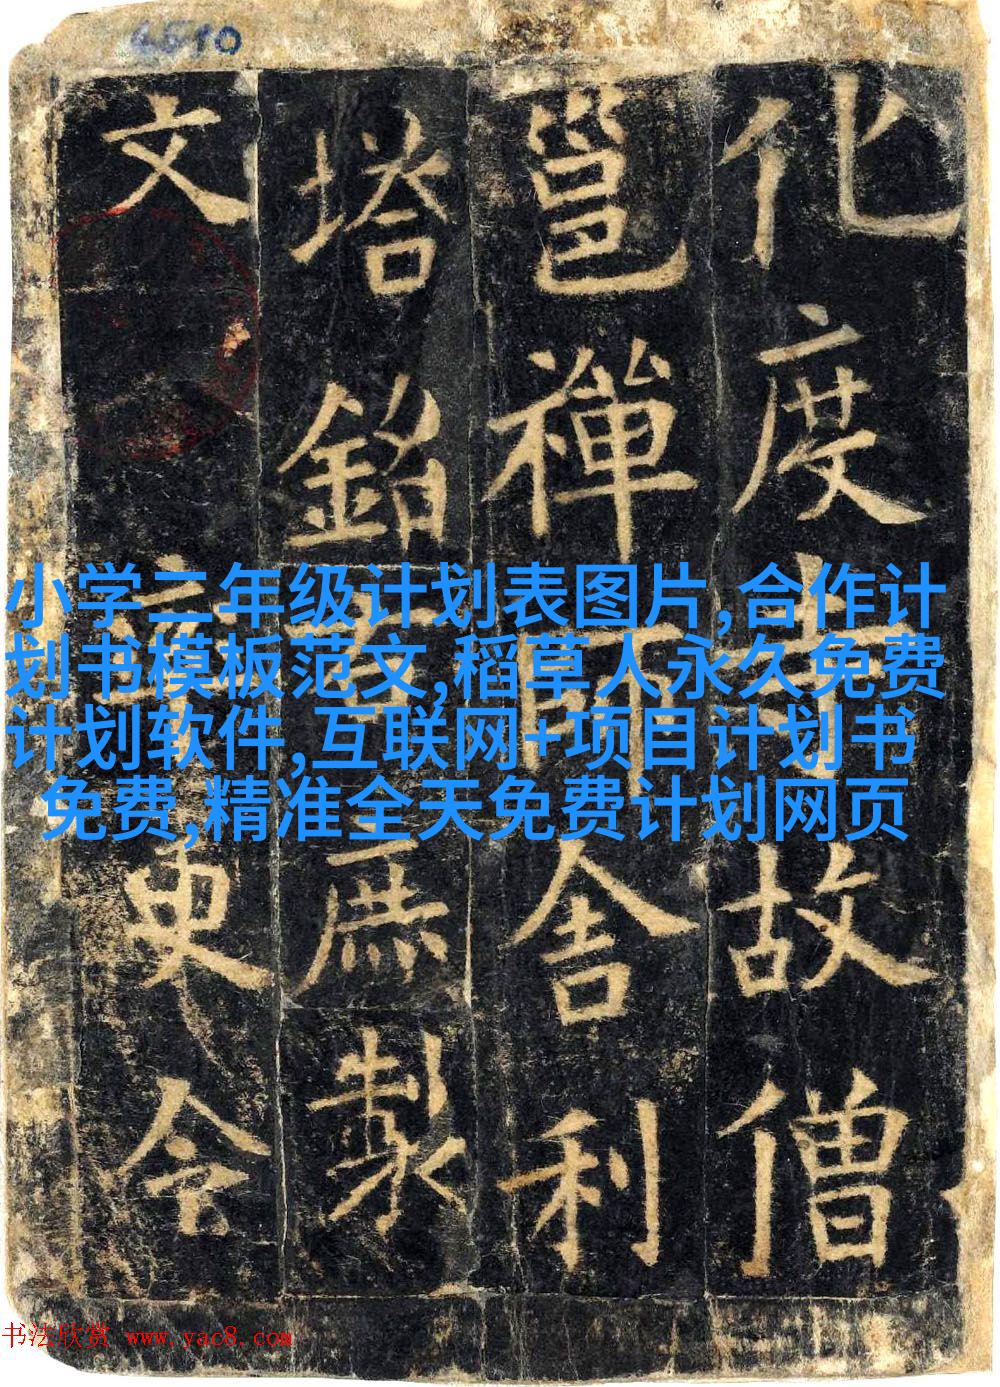 化度寺故僧
邕禪師舍利
塔銘右庶製
文率更令
小学二年级计划表图片,合作计
划书模板范文,稻草人永久免费
计划软件,互联网+项目计划书
免费,精准全天免费计划网页
书法欣赏 www.yac8.com